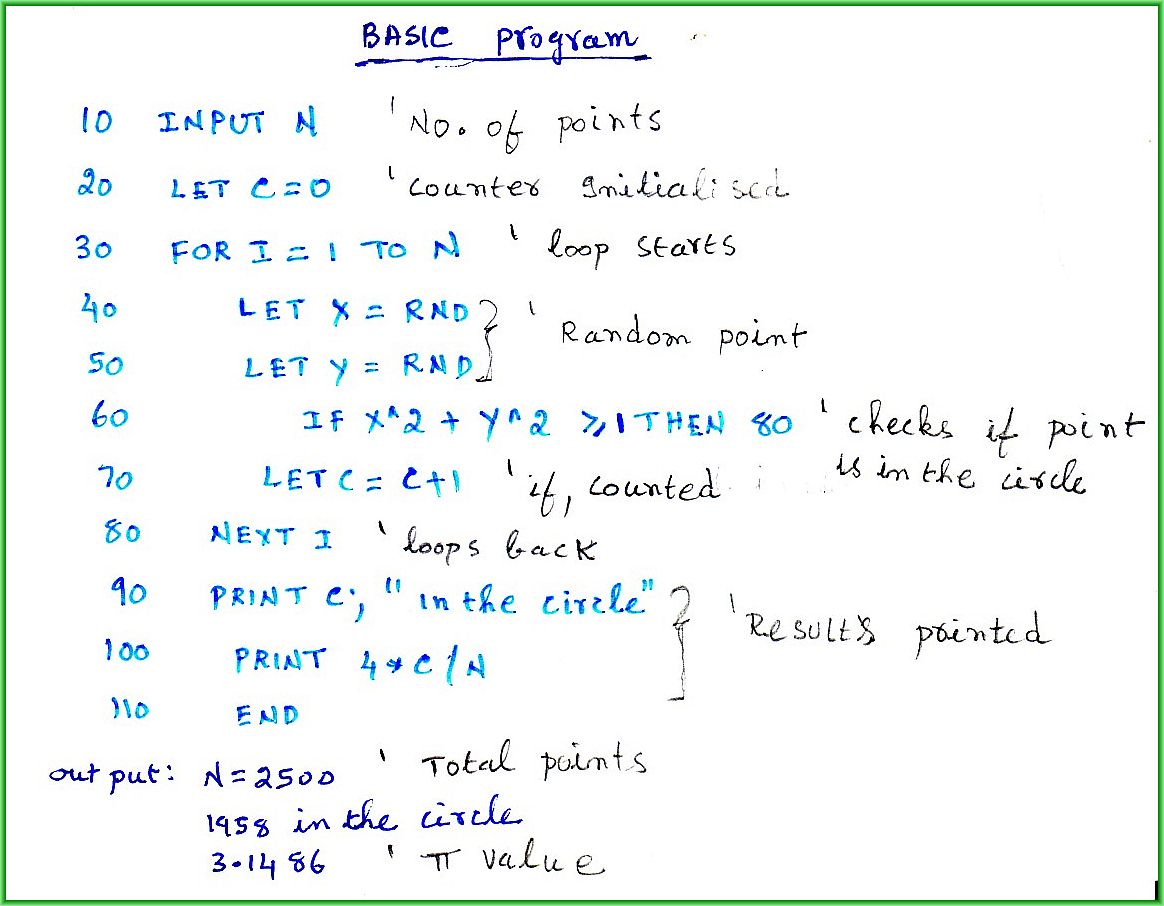 BASIC program
10 INPUT N 'No. of points
20 LET C=0 'counter Initialised
30 FOR I = 1 TO N 'loop starts
40 LET X = RND
50 LET Y = RND } 'Random point
60 IF X^2 + Y^2 ≥ 1 THEN 80 'checks if point
is in the circle
70 LET C = C+1 'if, counted
80 NEXT I 'loops back
90 PRINT C; "in the circle"
100 PRINT 4*C/N } 'Results printed
110 END
output: N=2500 'Total points
1958 in the circle
3.1486 'π value